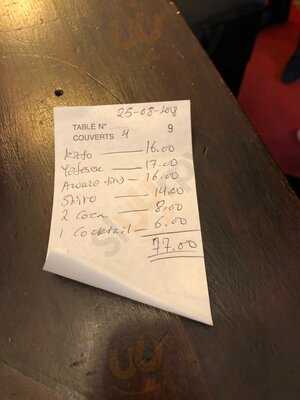 25-08-2018
TABLE N° 9
COUVERTS 4
Kitfo 16.00
17.00
Awaze 16.00
Shiro 14.00
2 Coca 8.00
1 Cocktail 6.00
77.00